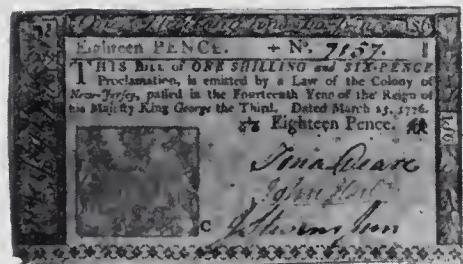 One Shilling and Six-pence
Eighteen PENCE. No. 7157.
THIS BILL of ONE SHILLING and SIX-PENCE
Proclamation, is emitted by a Law of the Colony of
New-Jersey, passed in the Fourteenth Year of the Reign of
his Majesty King George the Third. Dated March 25, 1776.
Eighteen Pence.
John
C
J Stevens Jun